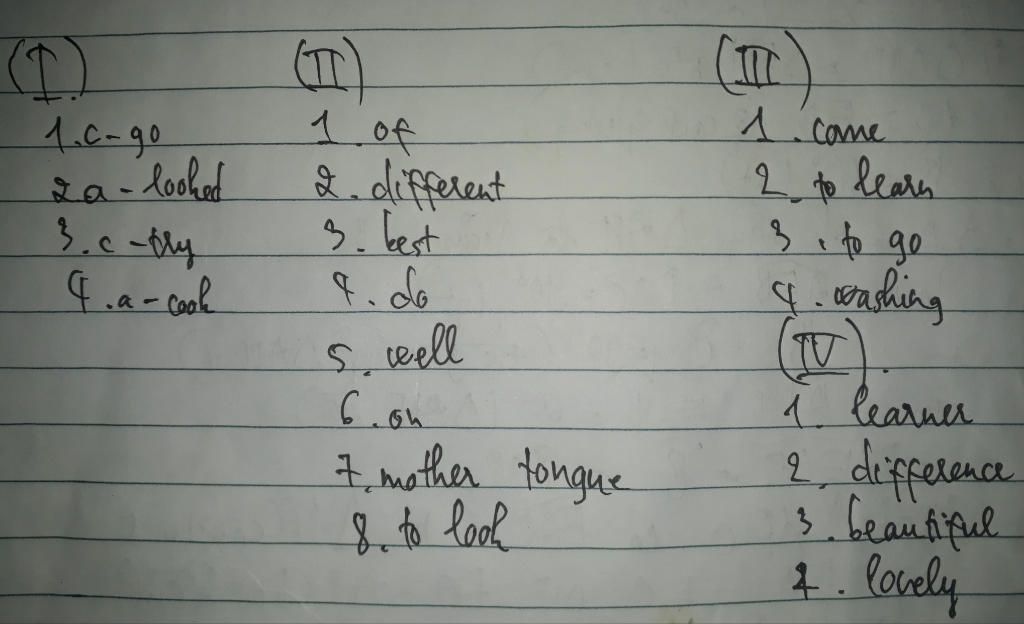 (I)
1.c-go
2a-looked
3.c-try
4.a-cook
(II)
1.of
2.different
3.best
4.do
5.well
6.on
7.mother tongue
8.to look
(III)
1.come
2.to learn
3.to go
4.washing
(IV).
1.learner
2.difference
3.beautiful
4.lovely